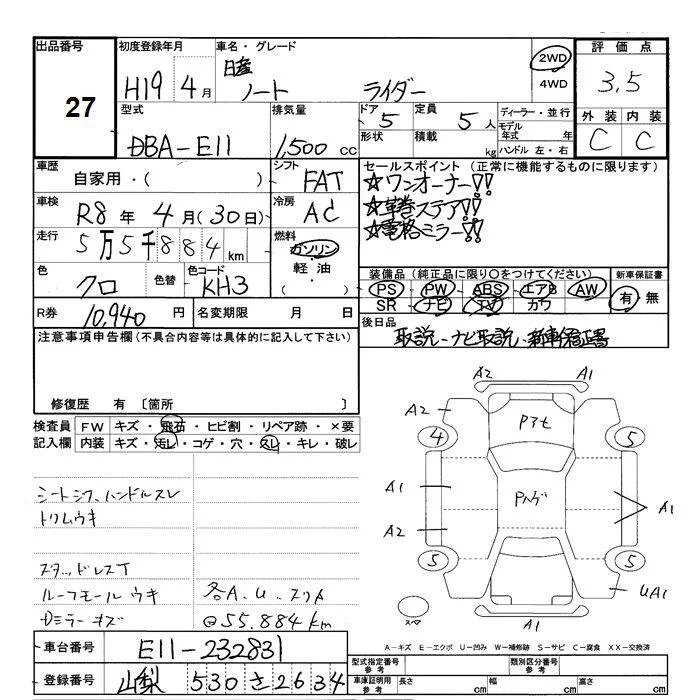 出品番号 初度登録年月 車名・グレード 2WD 評価点
27 H19年4月 日産 ノート ライダー 4WD 3.5
型式 排気量 ドア 定員 ディーラー・並行 外装 内装
DBA-E11 1,500cc 5 5人 モデル年式 年 C C
形状 積載 kg ハンドル 左・右
車歴 シフト セールスポイント (正常に機能するものに限ります)
自家用・( ) FAT ☆ワンオーナー!!
車検 冷房 ☆革巻ステア!!
R8年4月(30日) AC ☆電格ミラー!!
走行 燃料
5万5千884km ガソリン
軽油・( )
色 色替 色コード 装備品 (純正品に限り○をつけてください) 新車保証書
クロ KH3 PS PW ABS エアB AW 有・無
SR ナビ TV カワ
R券 10,940円 名変期限 月 日 後日品
取説・ナビ取説・新車保証書
注意事項申告欄 (不具合内容等は具体的に記入して下さい)
修復歴 有 〔箇所 〕
検査員 FW キズ・飛石・ヒビ割・リペア跡・×要
記入欄 内装 キズ・汚レ・コゲ・穴・スレ・キレ・破レ
シートシワ、ハンドルスレ
トリムウキ
スタッドレスT
ルーフモールウキ 各A.U.スリキ
Dミラーキズ @55.884km
A2 A1
A2 A1
4 5
A1 A1
A2
5 5
UA1
スペア A1
A-キズ E-エクボ U-凹み W-補修跡 S-サビ C-腐食 XX-交換済
車台番号 E11-232831
登録番号 山梨 530 さ 2634
型式指定番号 参考 類別区分番号 参考
車庫証明用 参考 長さ cm 幅 cm 高さ cm